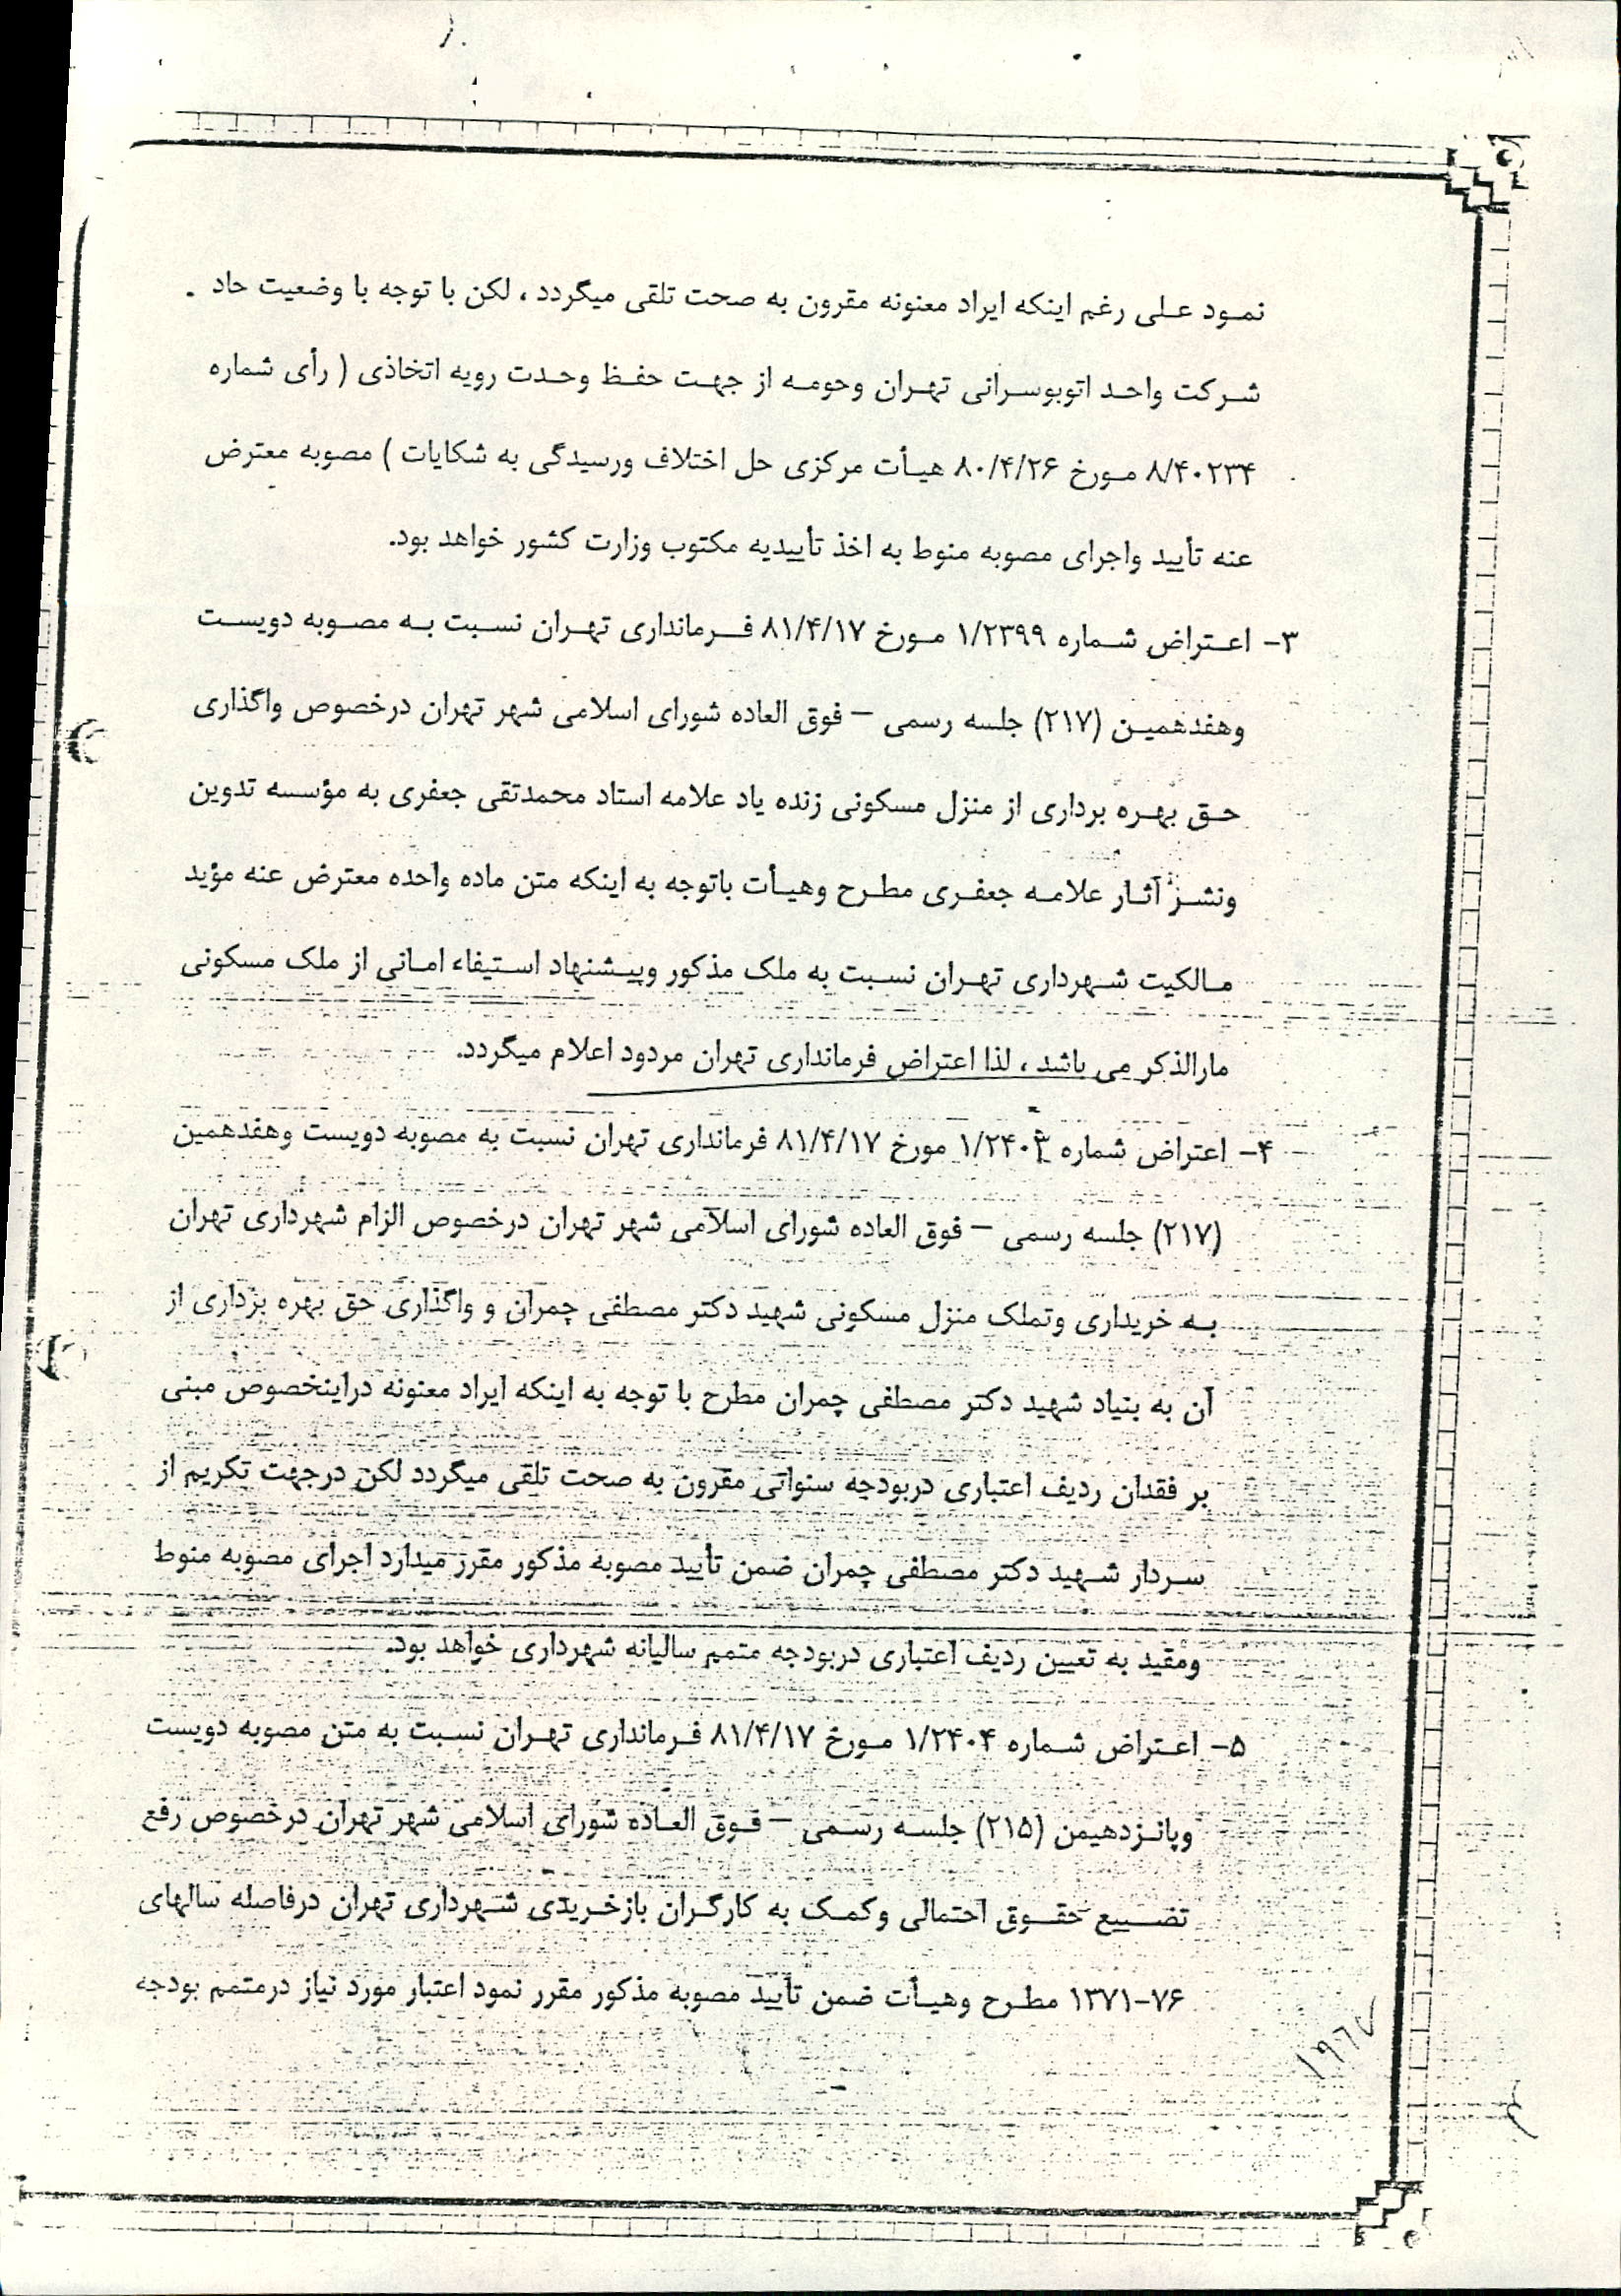 نمود علی رغم اینکه ایراد معنونه مقرون به صحت تلقی میگردد ، لکن با توجه با وضعیت حاد
شرکت واحد اتوبوسرانی تهران وحومه از جهت حفظ وحدت رویه اتخاذی ( رأی شماره
۸/۴۰۲۳۴ مورخ ۸۰/۴/۲۶ هیأت مرکزی حل اختلاف ورسیدگی به شکایات ) مصوبه معترض
عنه تأیید واجرای مصوبه منوط به اخذ تأییدیه مکتوب وزارت کشور خواهد بود.
۳- اعتراض شماره ۱/۲۳۹۹ مورخ ۸۱/۴/۱۷ فرمانداری تهران نسبت به مصوبه دویست
وهفدهمین (۲۱۷) جلسه رسمی – فوق العاده شورای اسلامی شهر تهران درخصوص واگذاری
حق بهره برداری از منزل مسکونی زنده یاد علامه استاد محمدتقی جعفری به مؤسسه تدوین
ونشر آثار علامه جعفری مطرح وهیأت باتوجه به اینکه متن ماده واحده معترض عنه مؤید
مالکیت شهرداری تهران نسبت به ملک مذکور وپیشنهاد استیفاء امانی از ملک مسکونی
مارالذکر می باشد ، لذا اعتراض فرمانداری تهران مردود اعلام میگردد.
۴- اعتراض شماره ۱/۲۴۰۳ مورخ ۸۱/۴/۱۷ فرمانداری تهران نسبت به مصوبه دویست وهفدهمین
(۲۱۷) جلسه رسمی – فوق العاده شورای اسلامی شهر تهران درخصوص الزام شهرداری تهران
به خریداری وتملک منزل مسکونی شهید دکتر مصطفی چمران و واگذاری حق بهره برداری از
آن به بنیاد شهید دکتر مصطفی چمران مطرح با توجه به اینکه ایراد معنونه دراینخصوص مبنی
بر فقدان ردیف اعتباری دربودجه سنواتی مقرون به صحت تلقی میگردد لکن درجهت تکریم از
سردار شهید دکتر مصطفی چمران ضمن تأیید مصوبه مذکور مقرر میدارد اجرای مصوبه منوط
ومقید به تعیین ردیف اعتباری دربودجه متمم سالیانه شهرداری خواهد بود.
۵- اعتراض شماره ۱/۲۴۰۴ مورخ ۸۱/۴/۱۷ فرمانداری تهران نسبت به متن مصوبه دویست
وپانزدهیمن (۲۱۵) جلسه رسمی – فوق العاده شورای اسلامی شهر تهران درخصوص رفع
تضییع حقوق احتمالی وکمک به کارگران بازخریدی شهرداری تهران درفاصله سالهای
۱۳۷۱-۷۶ مطرح وهیأت ضمن تأیید مصوبه مذکور مقرر نمود اعتبار مورد نیاز درمتمم بودجه